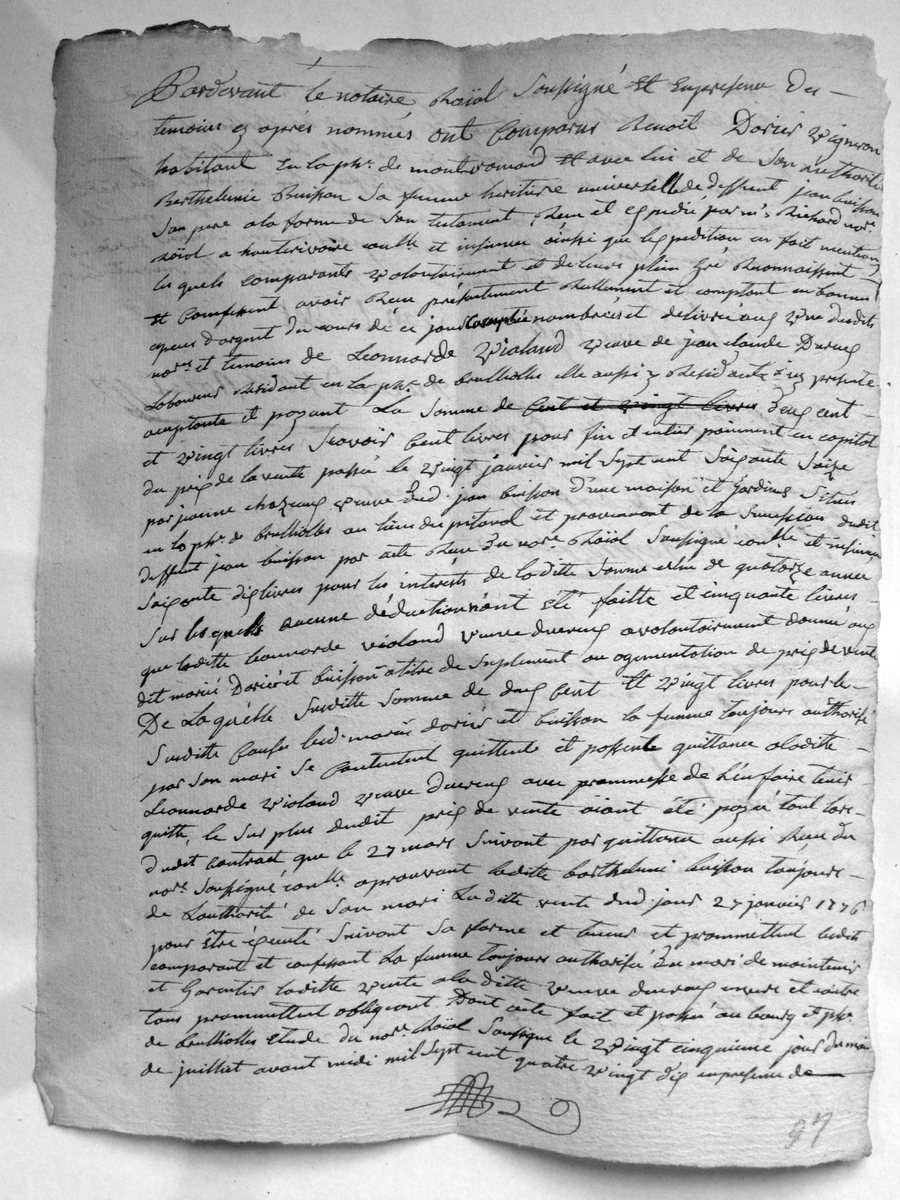 Pardevant le notaire Roïal Soussigné Et En presence des
temoins cy apres nommés ont Comparus Benoit Dorier vigneron
habitant En la psse. de montromand Et avec lui et de Son authorité
Berthelmie Buisson Sa femme heritiere universelle de deffunt jean buisson
Son pere a la forme de Son testament Receu et expedié par me. Richard nore.
roïal a hauterivoire conllé et insinué ainssi que lexpedition en fait mention
les quels comparants volontairement et de leurs plein Gré Reconnaissent
Et Confessent avoir Receu présentement Réellement et comptant en bonnes
especes d'argent du cours dé ce jour Comptée nombrées et delivrée aux vue desdits
nore. et temoins de Leonnarde Violand veuve de jean claude Ducreux
Laboureur Résidant en la psse. de brullioles elle aussi y Residante icy présente
acceptante et payant La Somme de Cent et vingt livres deux cent
et vingt livres Scavoir Cent livres pour fin et entier paiment en capital
du prix de la vente passée le vingt janvier mil Sept cent Soixante Seize
par jeanne chazaux veuve dud. jean buisson d'une maison et jardins Situés
en la psse. de brullioles au lieu du pitaval et provenant de la Succession dudit
deffunt jean buisson par acte Receu du nore. Roïal Soussigné conllé et insinué
Soixante dix livres pour les interests de la ditte Somme celui de quatorze année
Sur les quels aucune déduction n'ont Eté faitte et cinquante livres
que laditte Leonnarde violand veuve ducreux a volontairement donné aux
dit mariés Dorier et buisson a titre de Suplement ou ogmentation de prix de vente
De La quelle Susditte Somme de deux Cent Et vingt livres pour le
Susditte Causes lesd. mariés dorier et buisson la femme toujours authorisée
par Son mari Se Contentent quittent et passent quittance a laditte
Leonnarde violand veuve ducreux avec prommesse de L'en faire tenir
quitte, le Sur plus dudit prix de vente aiant été payée tout lors
dudit contract que le 27 mars Suivant par quittance aussi Receu du
nore. Soussigné conllé aprouvant laditte barthelmie buisson toujours
de Lauthorité de Son mari Laditte vente dud. jour 27 janvier 1776
pour être exécuté Suivant Sa forme et teneur et promettent lesdits
comparant et confessant La femme toujours authorisée du mari de maintenir
et Garentir laditte vente a la ditte veuve ducreux envers et contre
tous prommettent obligeant Dont acte Fait et passé au bourg et psse.
de brullioles Etude du nore. Roïal Soussigné le vingt cinquieme jour du mois
de juillet avant midi mil Sept cent quatre vingt dix en presence de
97